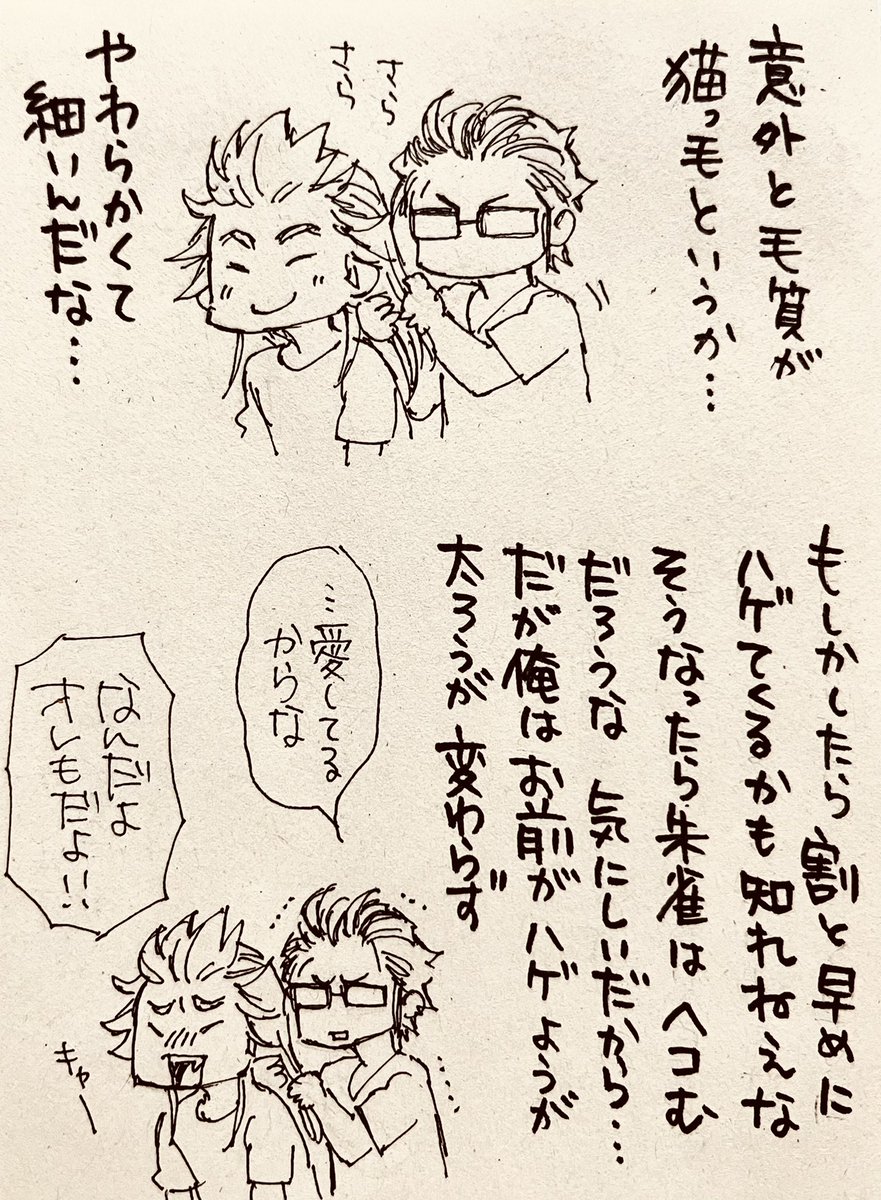 意外と毛質が
猫っ毛というか…
さら
さら
やわらかくて
細いんだな…
もしかしたら割と早めに
ハゲてくるかも知れねぇな
そうなったら朱雀はヘコむ
だろうな 気にしいだから…
だが俺はお前がハゲようが
太ろうが変わらず
…愛してる
からな
なんだよ
オレもだよ!!
キャー